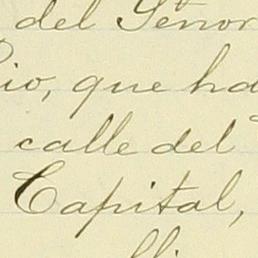 del Señor
io, que ha
calle del
Capital,